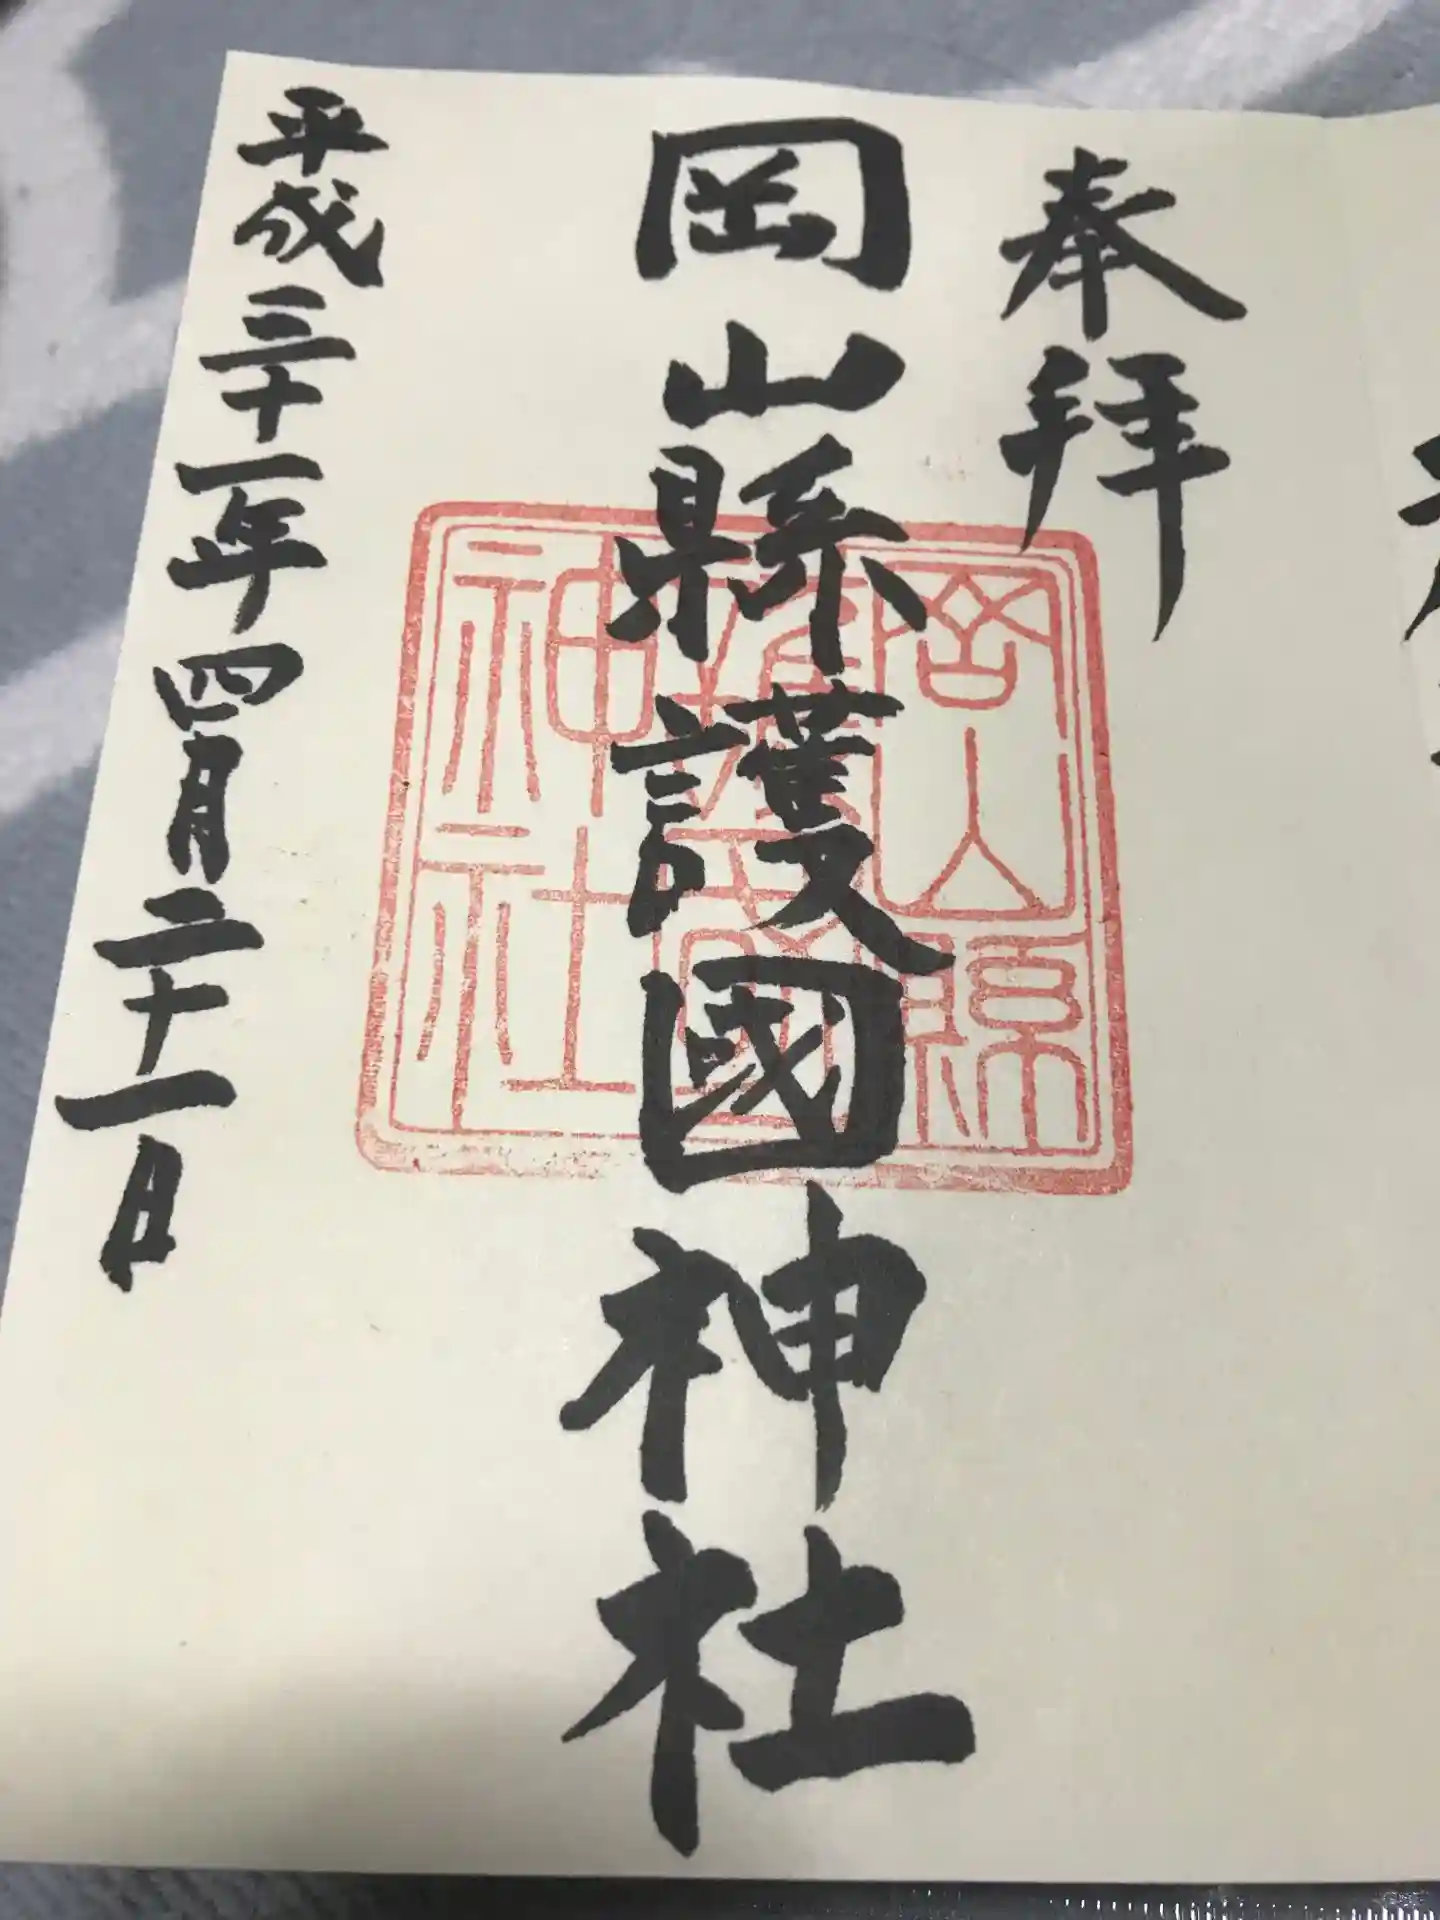 奉拝
岡山縣護國神社
岡山縣
護國
神社
平成三十一年四月二十一日